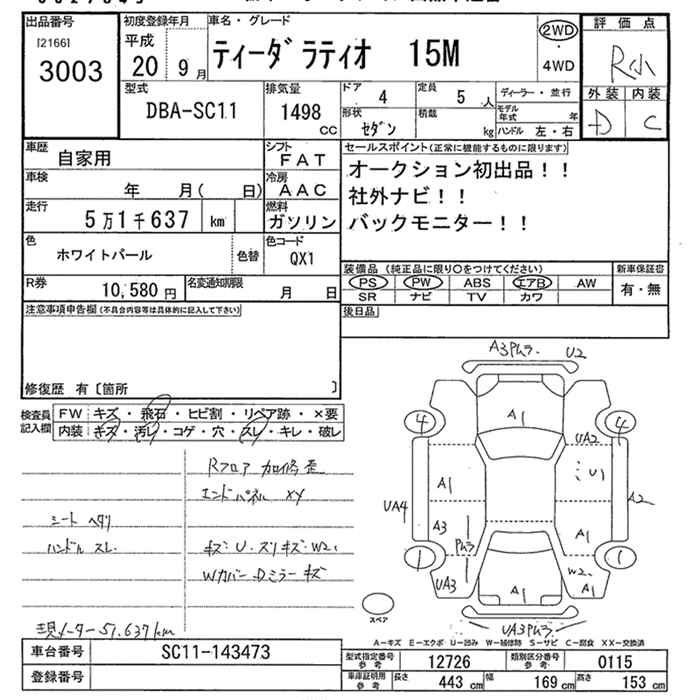 出品番号 初度登録年月 車名・グレード 評価点
[2166] 平成 ティーダ ラティオ 15M 2WD R小
3003 20 9月 ・ 4WD
型式 排気量 ドア 定員 ディーラー・並行 外装 内装
DBA-SC11 1498 cc 4 5人 モデル年式 年 D C
形状 積載
セダン kg ハンドル 左・右
車歴 自家用 シフト FAT セールスポイント(正常に機能するものに限ります)
車検 年 月( 日) 冷房 AAC オークション初出品!!
走行 5万1千637 km 燃料 ガソリン 社外ナビ!!
バックモニター!!
色 ホワイトパール 色替 色コード QX1
R券 10,580円 名変通知期限 月 日
装備品(純正品に限り○をつけてください) 新車保証書
PS PW ABS エアB AW 有・無
SR ナビ TV カワ
注意事項申告欄(不具合内容等は具体的に記入して下さい) 後日品
修復歴 有〔箇所 〕
検査員記入欄 FW キズ・飛石・ヒビ割・リペア跡・×要
内装 キズ・汚レ・コゲ・穴・スレ・キレ・破レ
Rフロア 加修歪
エンドパネル XY
シート ヘタリ
ハンドル スレ キズ・U・スリキズ・W2,
Wカバー・Dミラーキズ
現メーター51,637km
A3Pムラ. U2
A1
4 4
UA2
U1
A1
UA4 A2
A3 A1
Pムラ
1 1
W2
UA3 A1 A1
UA3Pムラ.
スペア
A-キズ E-エクボ U-凹み W-補修跡 S-サビ C-腐食 XX-交換済
車台番号 SC11-143473
登録番号
型式指定番号参考 12726 類別区分番号参考 0115
車庫証明用参考 長さ 443cm 幅 169cm 高さ 153cm